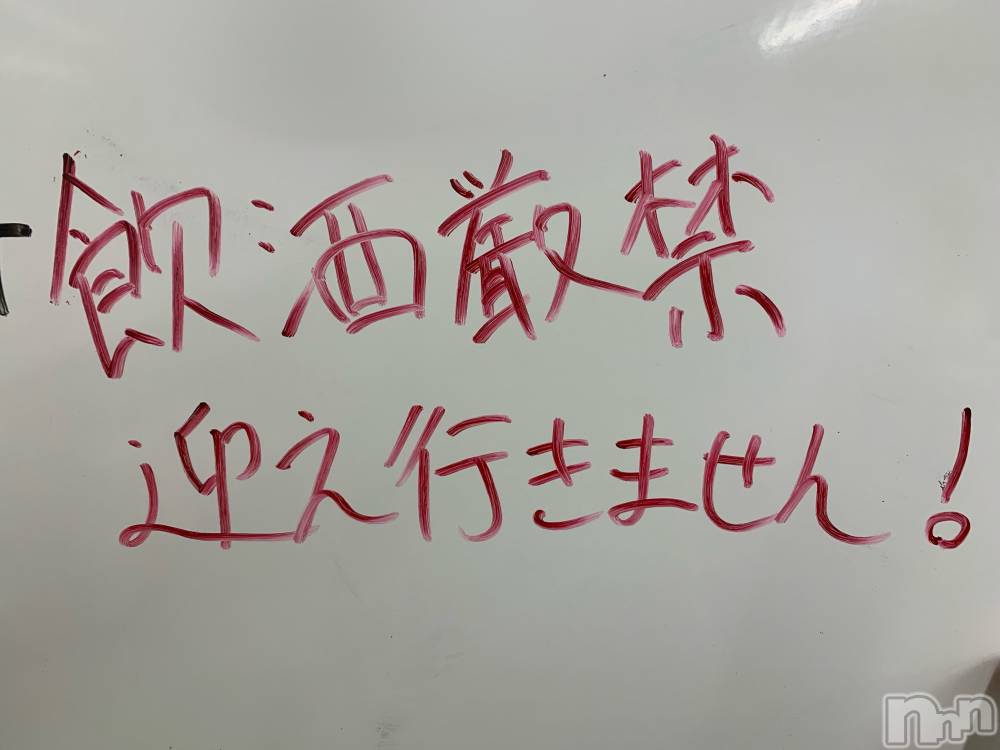 飲酒厳禁
迎え行きません!
nnn